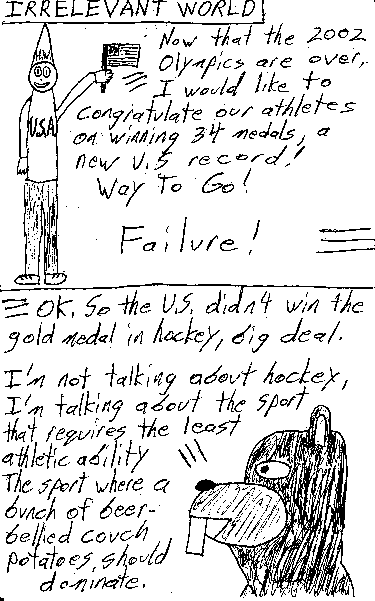 IRRELEVANT WORLD
Now that the 2002
Olympics are over,
I would like to
Congratulate our athletes
on winning 34 medals, a
new U.S record!
Way To Go!
U.S.A.
Failure!
OK. So the U.S. didn't win the
gold medal in hockey, big deal.
I'm not talking about hockey,
I'm talking about the sport
that requires the least
athletic ability
The sport where a
bunch of beer-
bellied couch
potatoes, should
dominate.